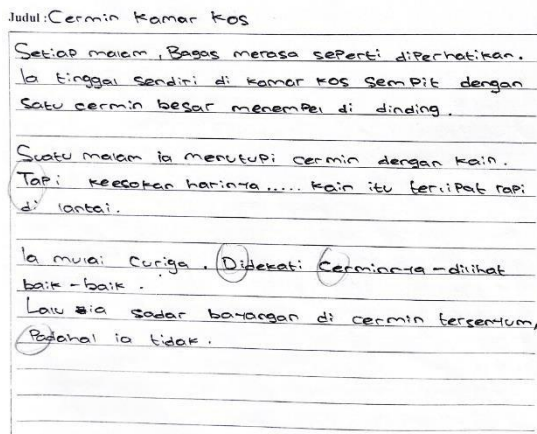 Judul : Cermin Kamar Kos
Setiap malam, Bagas merasa seperti diperhatikan.
Ia tinggal sendiri di kamar kos sempit dengan
satu cermin besar menempel di dinding.
Suatu malam ia menutupi cermin dengan kain.
Tapi keesokan harinya ..... kain itu terlipat rapi
di lantai.
Ia mulai curiga. Didekati Cerminnya - dilihat
baik - baik.
Lalu ia sadar bayangan di cermin tersenyum,
Padahal ia tidak.